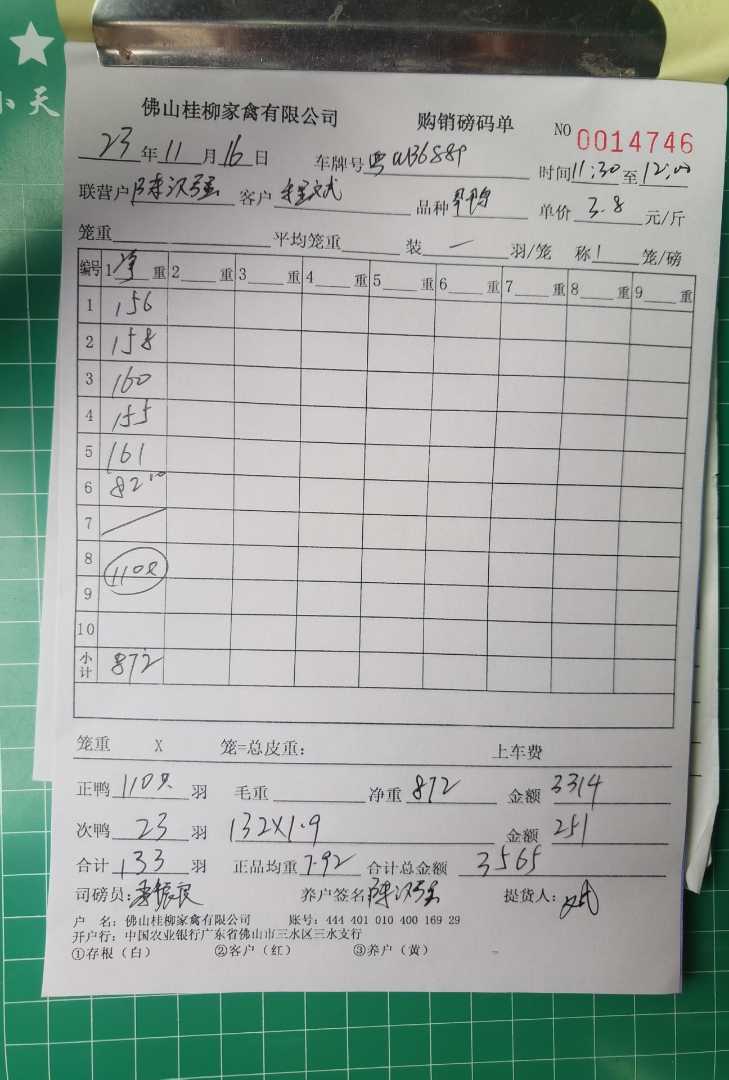 小天
佛山桂柳家禽有限公司 购销磅码单 NO 0014746
23年11月16日 车牌号 时间11:30至12:00
联营户陈汉强 客户程文武 品种 鸭 单价3.8元/斤
笼重 平均笼重 装 一 羽/笼 称1笼/磅
编号 1净重 2 重 3 重 4 重 5 重 6 重 7 重 8 重 9 重
1 156
2 158
3 160
4 155
5 161
6 82
7
8 110只
9
10
小计 872
笼重 X 笼=总皮重: 上车费
正鸭110只羽 毛重 净重872 金额3314
次鸭 23 羽 132X1.9 金额251
合计133羽 正品均重7.92 合计总金额3565
司磅员: 养户签名陈汉强 提货人:
户 名: 佛山桂柳家禽有限公司 账号: 444 401 010 400 169 29
开户行: 中国农业银行广东省佛山市三水区三水支行
①存根（白） ②客户（红） ③养户（黄）